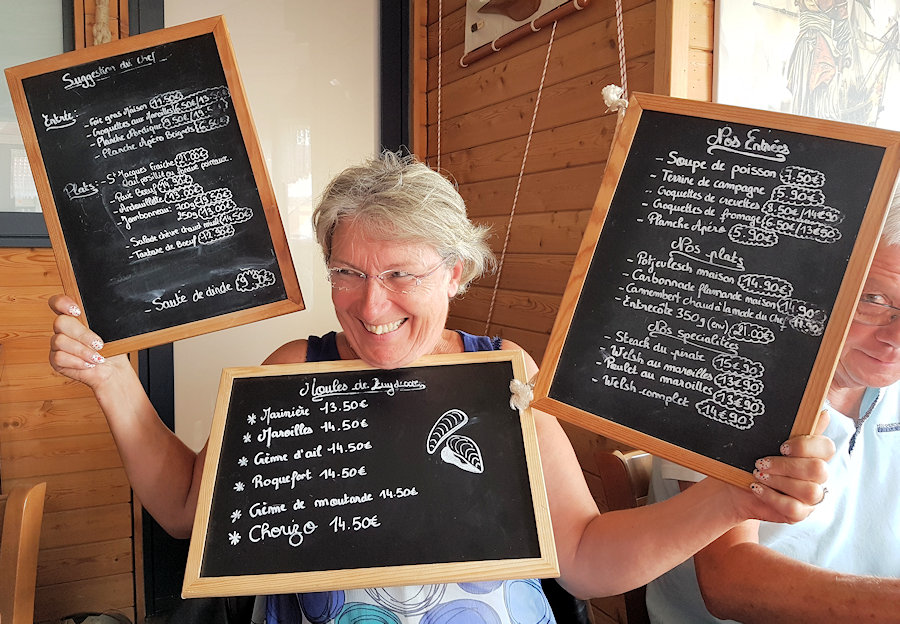 Suggestion du chef
Entrée:
- Foie gras Maison 11.50€
- Croquettes aux Maroilles 6.50€/13.
- Planche Nordique 9.50€/19.
- Planche Apéro Beignets 6.50€
Plats:
- St Jacques Fraîche 21.00€
au poireaux.
- Pavé Boeuf 19.90€
- Andouillette 14.90€
- Jambonneau: 700g
250g 13.90€
- Salade chèvre chaud Miel 14.50€
- Tartare de Boeuf 17.90€
- Sauté de dinde 9.90€
Moules de
* Marinière 13.50€
* Maroilles 14.50€
* Crème d'ail 14.50€
* Roquefort 14.50€
* Crème de moutarde 14.50€
* Chorizo 14.50€
Nos Entrées
- Soupe de poisson 7.50€
- Terrine de campagne 5.90€
- Croquettes de crevettes 7.50€ 14€90
- Croquettes de fromage 6.50€ 13€90
- Planche Apéro 5.90€
Nos plats
- Potjevlesch maison 14.90€
- Carbonnade flamande maison 14.90
- Camembert chaud à la mode du chef
- Entrecôte 350g (env) 21.00€
Nos Spécialitées
- Steack du pirate 15€90
- Welsh au maroilles 13€90
- Poulet au maroilles 13€90
- Welsh complet 14€90